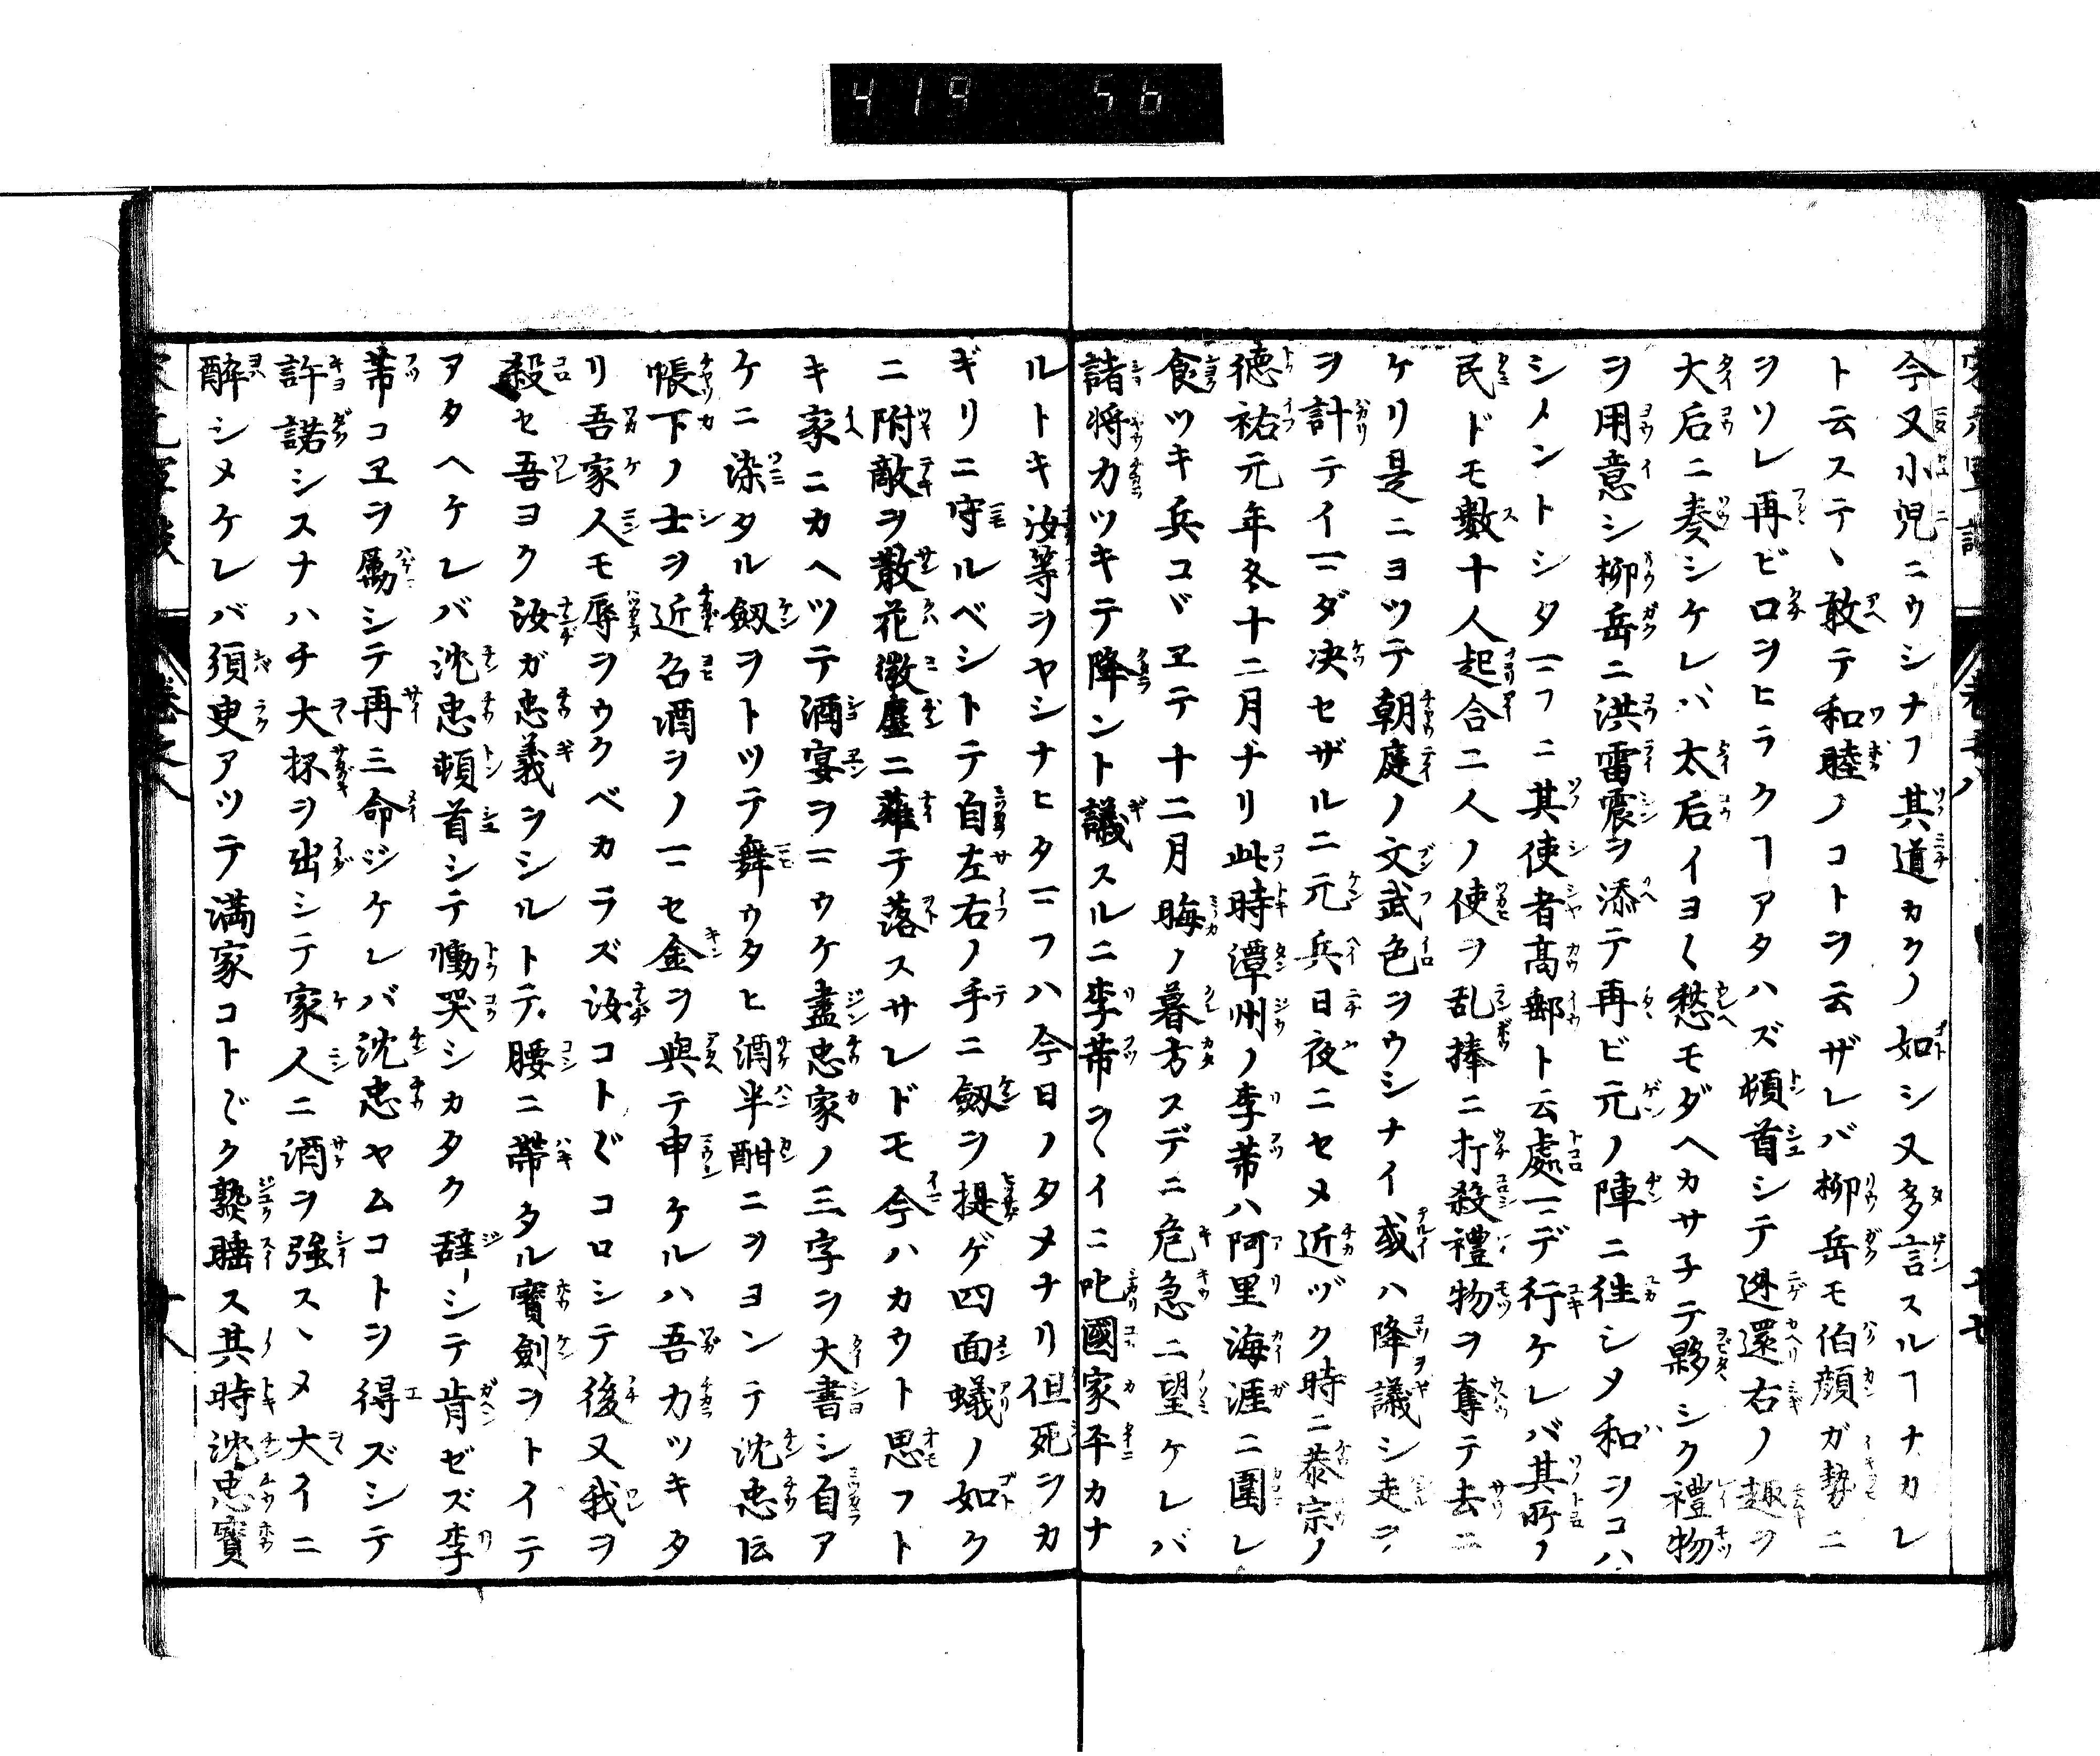 419 56
今又小児ニウシナフ其道カクノ如シ又多言スルヿナカレ
ト云ステヽ敢テ和睦ノコトヲ云ザレバ柳岳モ伯顔ガ勢ニ
ヲソレ再ビロヲヒラクヿアタハズ頓首シテ逃還右ノ趣ヲ
大后ニ奏シケレバ太后イヨ〱愁モダヘカサ子テ夥シク禮物
ヲ用意シ柳岳ニ洪雷震ヲ添テ再ビ元ノ陣ニ徃シメ和ヲコハ
シメントシタマフニ其使者髙郵ト云處マデ行ケレバ其所ノ
民ドモ數十人起合二人ノ使ヲ乱捧ニ打殺禮物ヲ奪テ去ニ
ケリ是ニヨツテ朝庭ノ文武色ヲウシナイ或ハ降議シ走ヲ
ヲ計テイマダ决セザルニ元兵日夜ニセメ近ヅク時ニ恭宗ノ
德祐元年冬十二月ナリ此時潭州ノ李芾ハ阿里海涯ニ圍レ
食ツキ兵コヾヱテ十二月晦ノ暮方スデニ危急ニ望ケレバ
諸将カツキテ降ント議スルニ李芾ヲヽイニ叱國家平カナ
ルトキ汝等ヲヤシナヒタマフハ今日ノタメナリ但死ヲカ
ギリニ守ルベシトテ自左右ノ手ニ劔ヲ提ゲ四面蟻ノ如ク
ニ附敵ヲ散花微塵ニ薙テ落スサレドモ今ハカウト思フト
キ家ニカヘツテ酒宴ヲマウケ盡忠家ノ三字ヲ大書シ自ア
ケニ染タル劔ヲトツテ舞ウタヒ酒半酣ニヲヨンテ沈忠伝
帳下ノ士ヲ近名酒ヲノマセ金ヲ與テ申ケルハ吾カツキタ
リ吾家人モ辱ヲウクベカラズ汝コト〴〵クコロシテ後又我ヲ
殺セ吾ヨク汝ガ忠義ヲシルトテ腰ニ帶タル寳劍ヲトイテ
アタヘケレバ沈忠頓首シテ慟哭シカタク辞シテ肯ゼズ李
芾コヱヲ厲シテ再三命ジケレバ沈忠ヤムコトヲ得ズシテ
許諾シスナハチ大杯ヲ出シテ家人ニ酒ヲ強スヽメ大イニ
醉シメケレバ須臾アツテ満家コト〴〵ク熟睡ス其時沈忠寳
十八